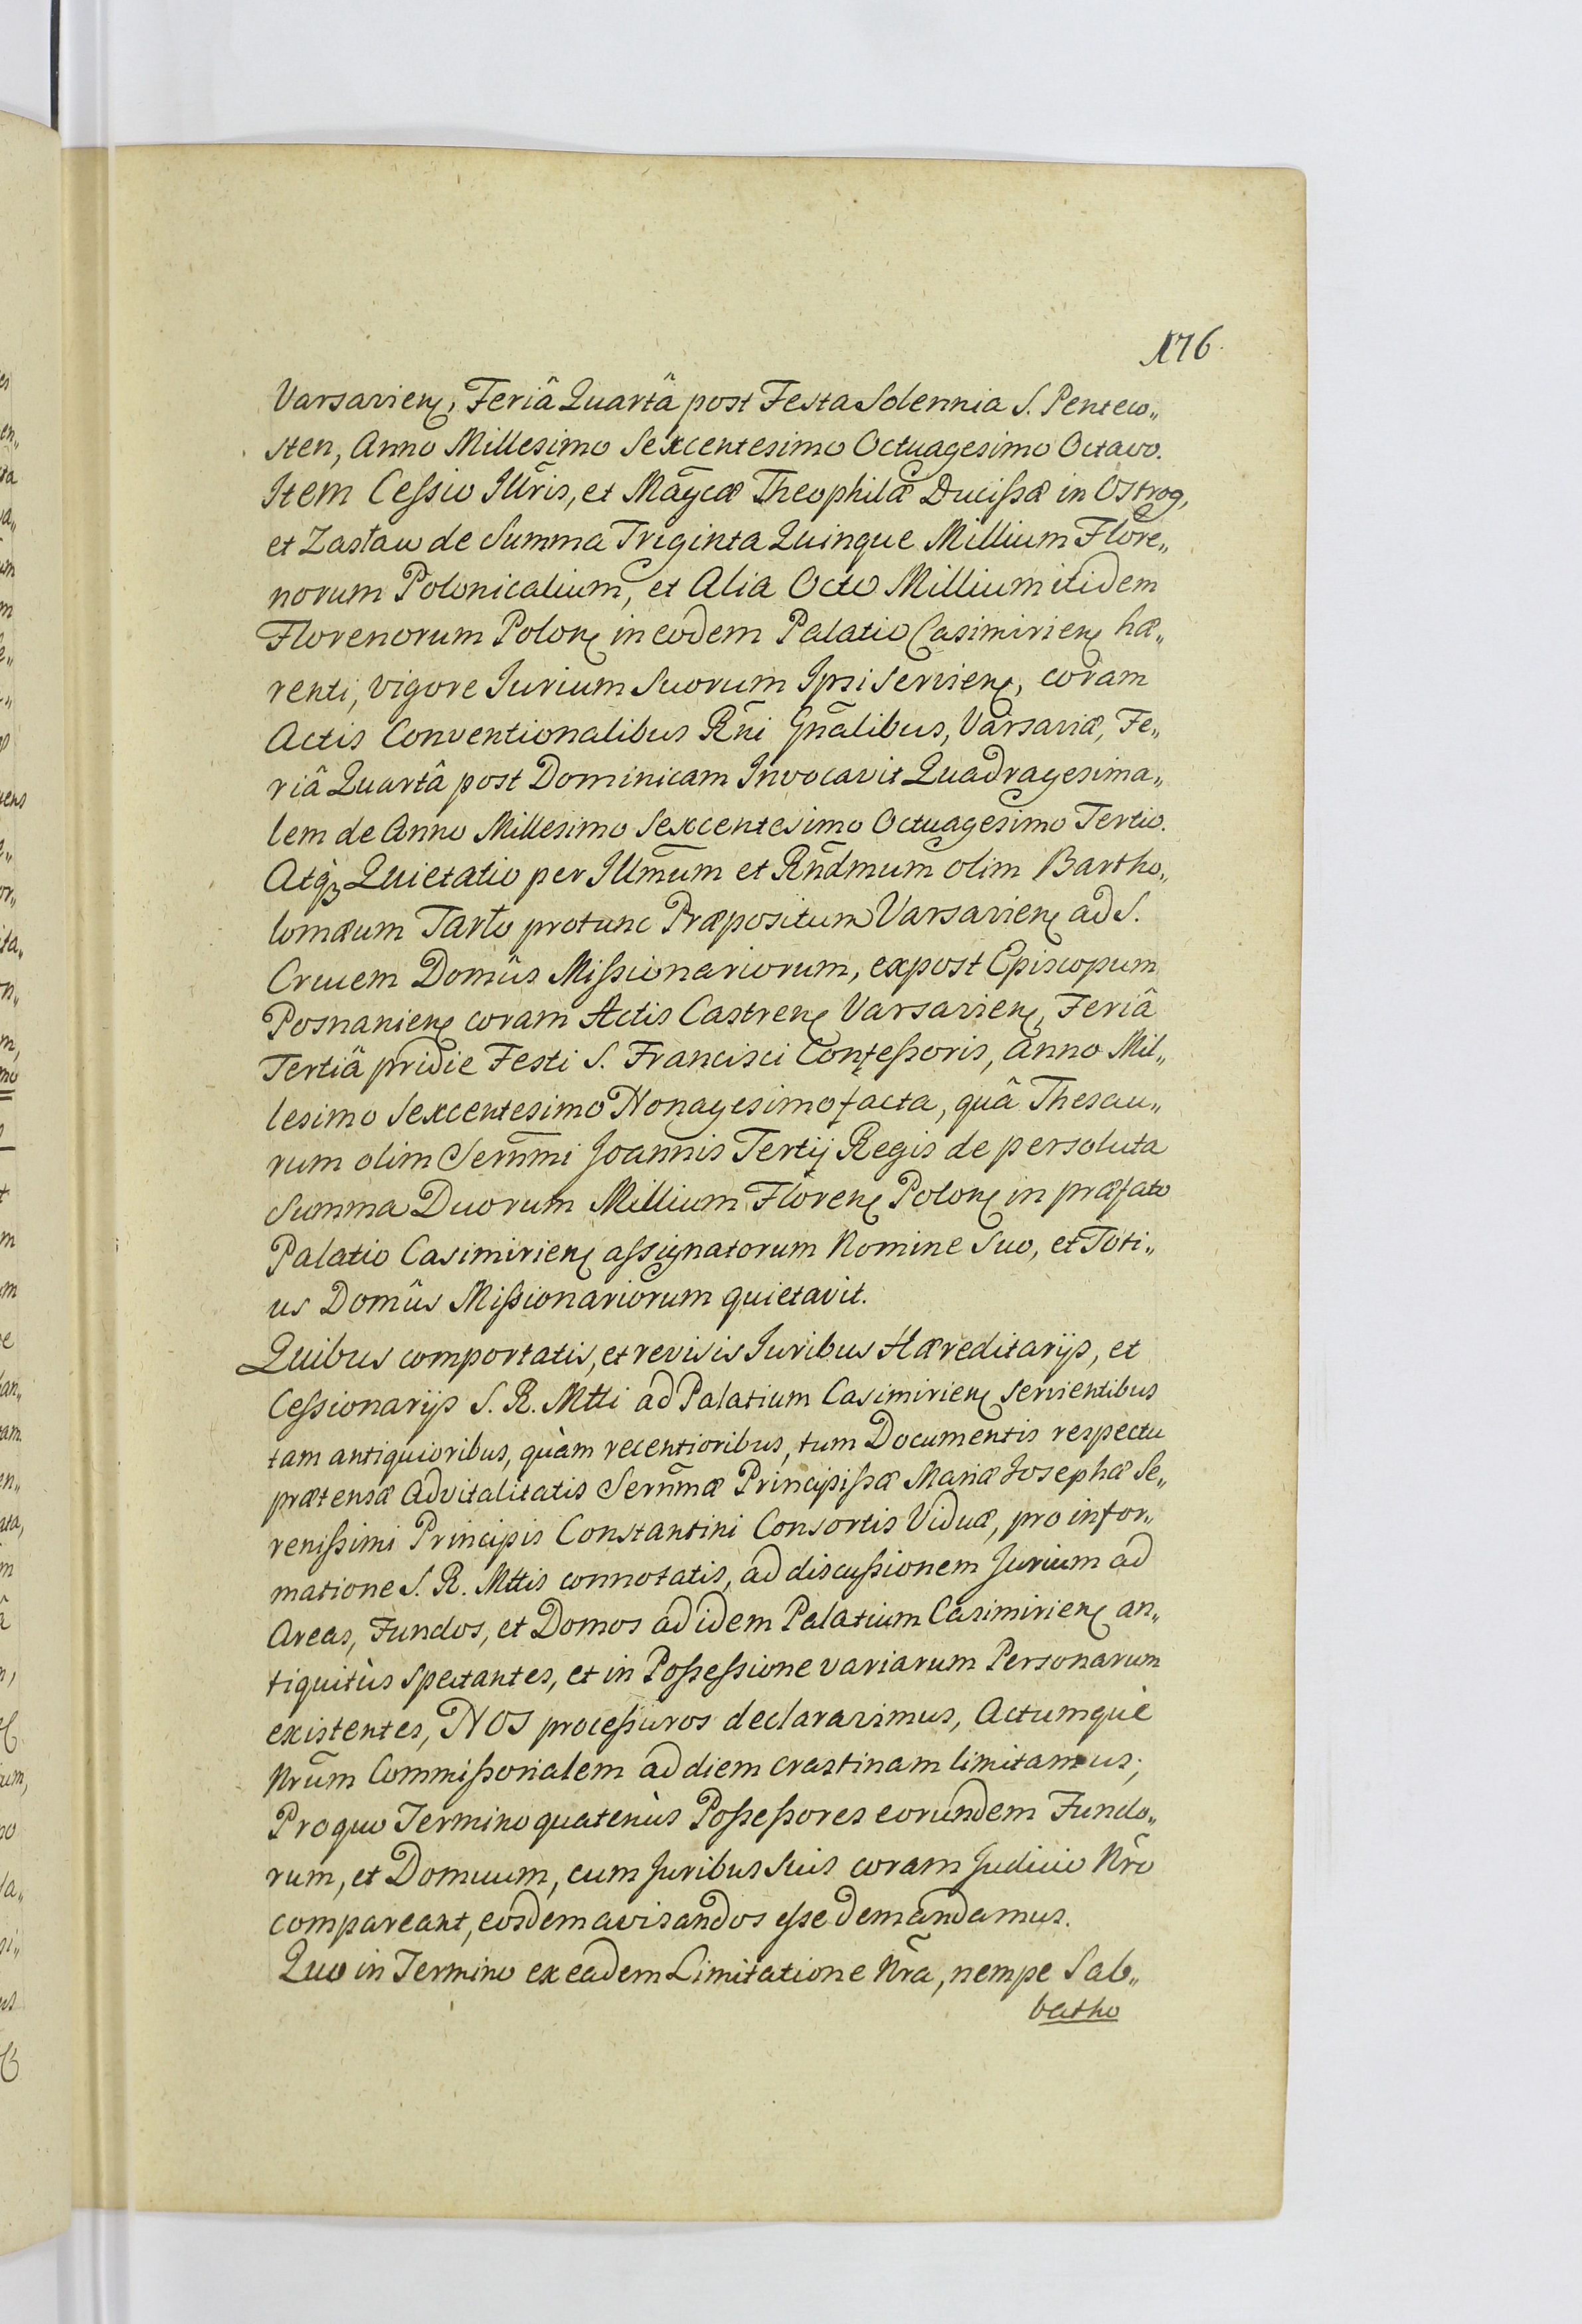 176.
Varsavienς, Feriâ Quartâ post Festa Solennia S. Penteco„
sten, Anno Millesimo Sexcentesimo Octuagesimo Octavo.
Item Cessio Illr̃is, et Magc̃æ Theophilæ Ducissæ in Ostrog,
et Zasław de Summa Triginta Quinque Millium Flore„
norum Polonicalium, et Alia Octo Millium itidem
Florenorum Polonς in eodem Palatio Casimirienς hæ„
renti, vigore Jurium Suorum Ipsi Servienς, coram
Actis Conventionalibus Rñi Gñalibus, Varsaviæ, Fe„
riâ Quartâ post Dominicam Invocavit Quadragesima„
lem de Anno Millesimo Sexcentesimo Octuagesimo Tertio.
Atqꝫ Quietatio per Illm̃um et Rñdmum olim Bartho„
lomæum Tarło protunc Præpositum Varsavienς ad S.
Crucem Domûs Missionariorum, expost Episcopum
Posnanienς coram Actis Castrenς Varsavienς, Feriâ
Tertiâ pridie Festi S. Francisci Confessoris, Anno Mil„
lesimo Sexcentesimo Nonagesimo facta, quâ Thesau„
rum olim Serñmi Joannis Tertij Regis de persoluta
Summa Duorum Millium Florenς Polonς in præfato
Palatio Casimirienς assignatorum Nomine Suo, et Toti„
us Domûs Missionariorum quietavit.
Quibus comportatis, et revisis Juribus Hæreditarijs, et
Cessionarijs S. R. Mtti ad Palatium Casimirienς servientibus
tam antiquioribus, quàm recentioribus, tum Documentis respectu
prætensæ Advitalitatis Serñmæ Principissæ Mariæ Josephæ Se„
renissimi Principis Constantini Consortis Viduæ, pro infor„
matione S. R. Mttis connotatis, ad discussionem Jurium ad
Areas, Fundos, et Domos ad idem Palatium Casimirienς an„
tiquitùs spectantes, et in Possessione variarum Personarum
existentes, NOS processuros declaravimus, Actumquè
Nr̃um Commissorialem ad diem crastinam limitamus;
Pro quo Termino quatenùs Possessores eorundem Fundo„
rum, et Domuum, cum Juribus Suis coram Judicio Nr̃o
compareant, eosdem avisandos esse demandamus.
Quo in Termino ex eadem Limitatione Nr̃a, nempe Sab„
batho